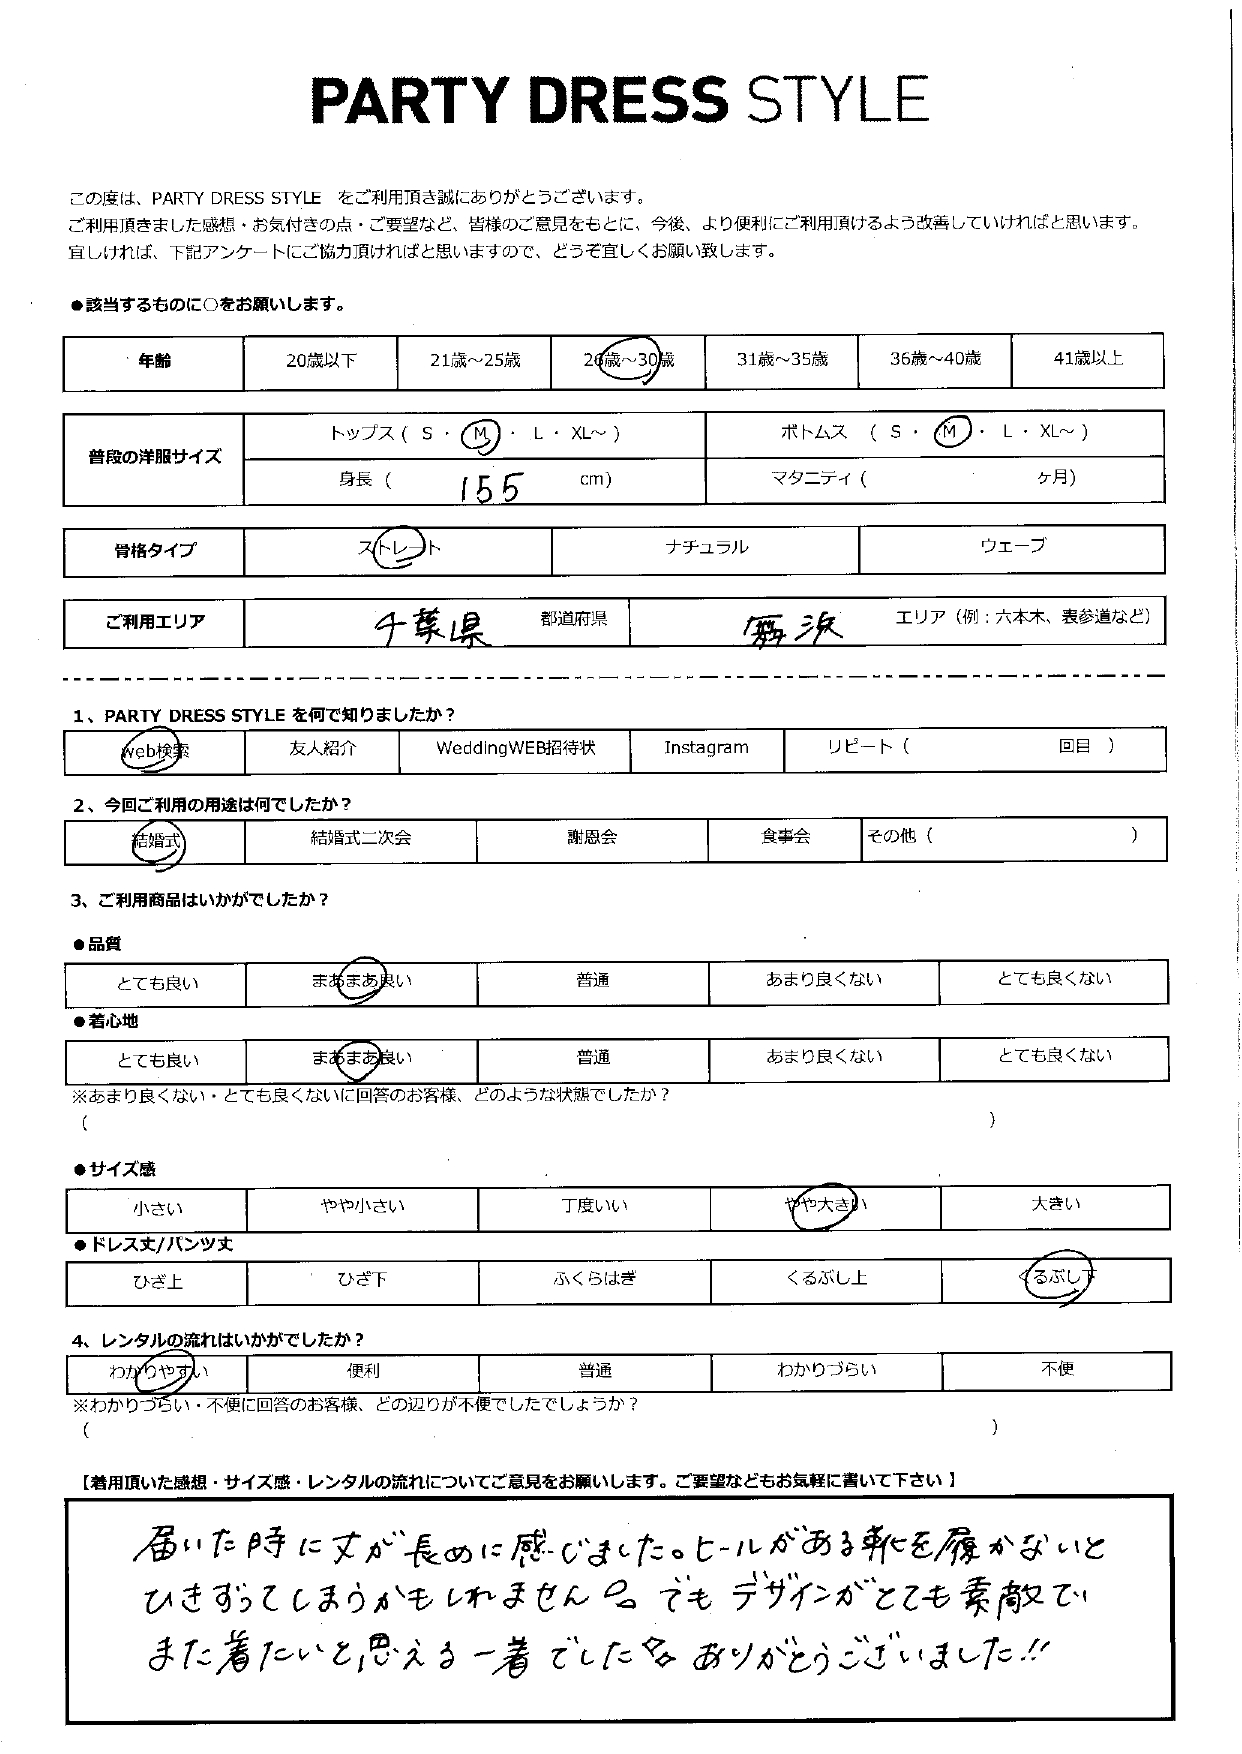 PARTY DRESS STYLE
この度は、PARTY DRESS STYLE をご利用頂き誠にありがとうございます。
ご利用頂きました感想・お気付きの点・ご要望など、皆様のご意見をもとに、今後、より便利にご利用頂けるよう改善していければと思います。
宜しければ、下記アンケートにご協力頂ければと思いますので、どうぞ宜しくお願い致します。
●該当するものに○をお願いします。
年齢 20歳以下 21歳～25歳 26歳～30歳 31歳～35歳 36歳～40歳 41歳以上
普段の洋服サイズ トップス ( S ・ M ・ L ・ XL～ ) ボトムス ( S ・ M ・ L ・ XL～ )
身長 ( 155 cm) マタニティ ( ヶ月)
骨格タイプ ストレート ナチュラル ウェーブ
ご利用エリア 千葉県 都道府県 舞浜 エリア（例：六本木、表参道など）
1、PARTY DRESS STYLE を何で知りましたか？
web検索 友人紹介 WeddingWEB招待状 Instagram リピート ( 回目 )
2、今回ご利用の用途は何でしたか？
結婚式 結婚式二次会 謝恩会 食事会 その他 ( )
3、ご利用商品はいかがでしたか？
●品質
とても良い まあまあ良い 普通 あまり良くない とても良くない
●着心地
とても良い まあまあ良い 普通 あまり良くない とても良くない
※あまり良くない・とても良くないに回答のお客様、どのような状態でしたか？
( )
●サイズ感
小さい やや小さい 丁度いい やや大きい 大きい
●ドレス丈/パンツ丈
ひざ上 ひざ下 ふくらはぎ くるぶし上 くるぶし下
4、レンタルの流れはいかがでしたか？
わかりやすい 便利 普通 わかりづらい 不便
※わかりづらい・不便に回答のお客様、どの辺りが不便でしたでしょうか？
( )
【着用頂いた感想・サイズ感・レンタルの流れについてご意見をお願いします。ご要望などもお気軽に書いて下さい】
届いた時に丈が長めに感じました。ヒールがある靴を履かないと
ひきずってしまうかもしれません。でもデザインがとても素敵で
また着たいと思える一着でした ありがとうございました!!